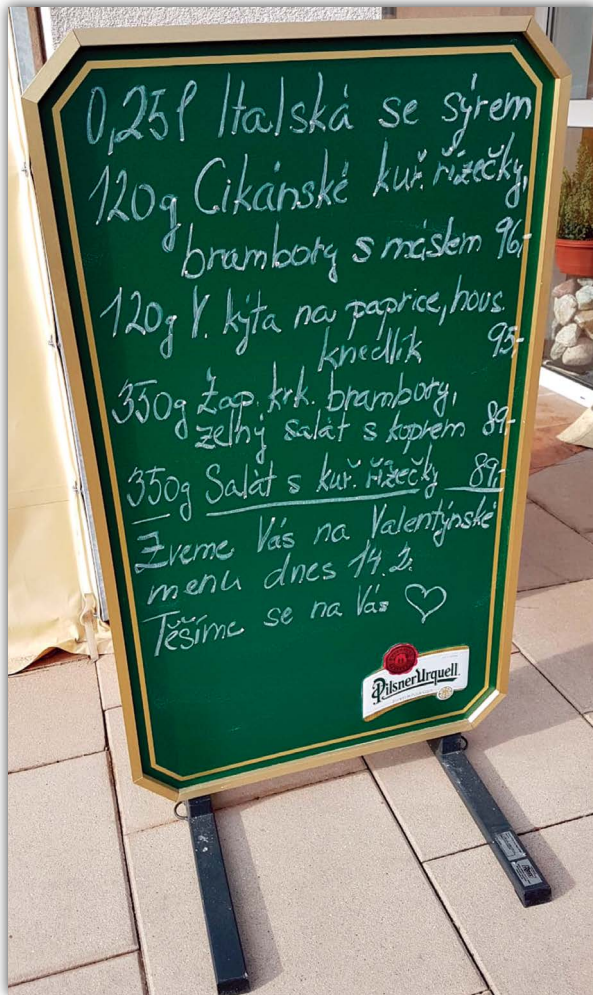 0,25l Italská se sýrem
120g Cikánské kuř. řízečky,
brambory s máslem 96,-
120g V. kýta na paprice, hous.
knedlík 95,-
350g Zap. krk. brambory,
zelný salát s koprem 89,-
350g Salát s kuř. řížečky 89,-
Zveme Vás na Valentýnské
menu dnes 14.2.
Těšíme se na Vás ♡
Pilsner Urquell